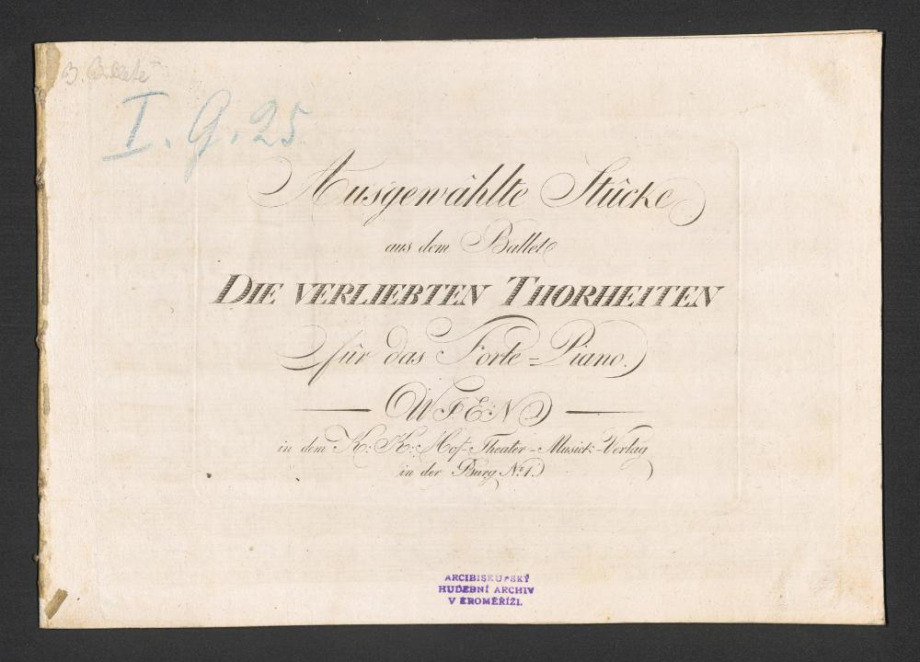 I. G. 25
Ausgewählte Stücke
aus dem Ballet
DIE VERLIEBTEN THORHEITEN
für das Forte-Piano.
WIEN
in dem K: K: Hof-Theater-Musick-Verlag
in der Burg No. 1.
ARCIBISKUPSKÝ
HUDEBNÍ ARCHIV
V KROMĚŘÍŽI.